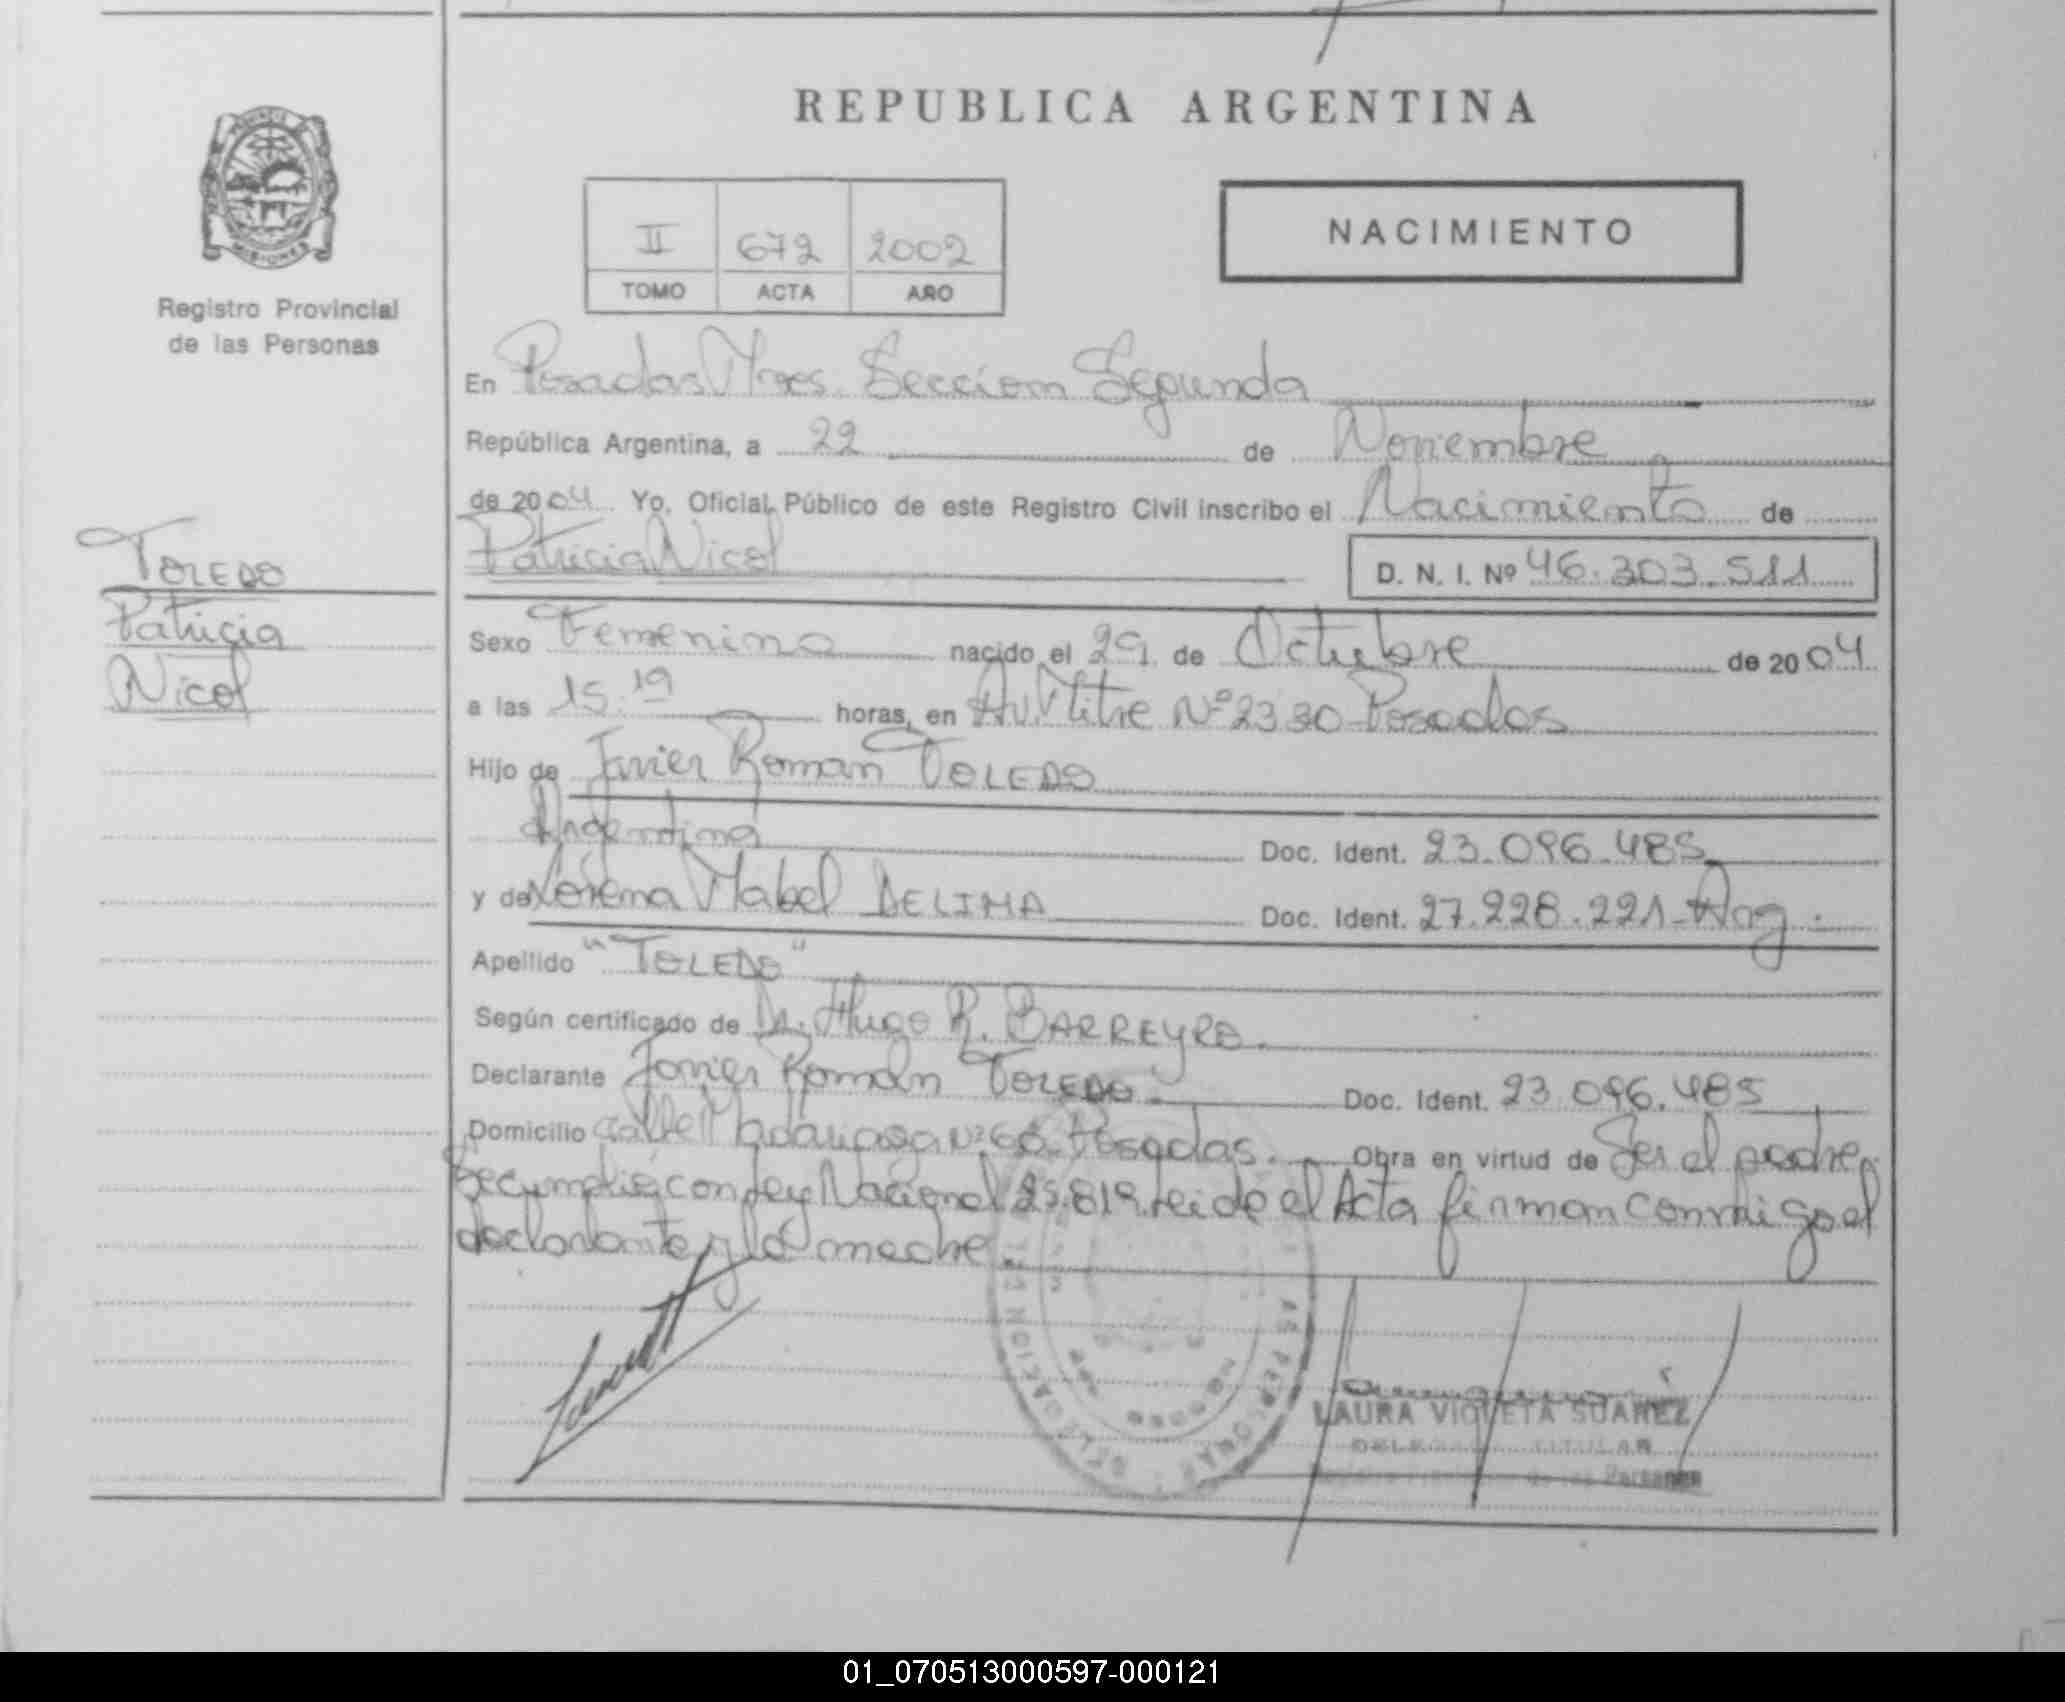 REPUBLICA ARGENTINA
II 672 2002
TOMO ACTA AÑO
NACIMIENTO
MISIONES
Registro Provincial
de las Personas
En Posadas Mnes. Sección Segunda
República Argentina, a 22 de Noviembre
de 2004 Yo, Oficial Público de este Registro Civil inscribo el Nacimiento de
Patricia Nicol
D. N. I. Nº 46.303.511
TOLEDO
Patricia
Nicol
Sexo Femenino nacido el 29 de Octubre de 2004
a las 15.19 horas, en Av. Mitre Nº 2330 Posadas
Hijo de Javier Roman TOLEDO
Argentina Doc. Ident. 23.096.485
y de Lorena Mabel DELIMA Doc. Ident. 27.228.221-Arg.
Apellido "TOLEDO"
Según certificado de Dr. Hugo R. BARREYRO.
Declarante Javier Román TOLEDO. Doc. Ident. 23.096.485
Domicilio Calle Madariaga Nº 66 Posadas. Obra en virtud de Ser el padre.
Se cumplió con Ley Nacional 25.819. Leida el Acta firman conmigo el
declarante y la madre.
LAURA VIOLETA SUAREZ
DELEGADA TITULAR
Registro Provincial de las Personas
01_070513000597-000121